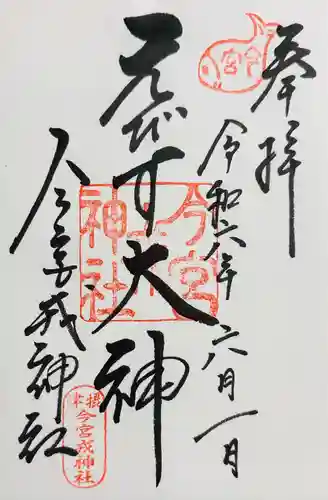 奉拝
令和六年 六月一日
えびす大神
今宮戎神社
今宮
今宮
神社
摂末
今宮戎神社